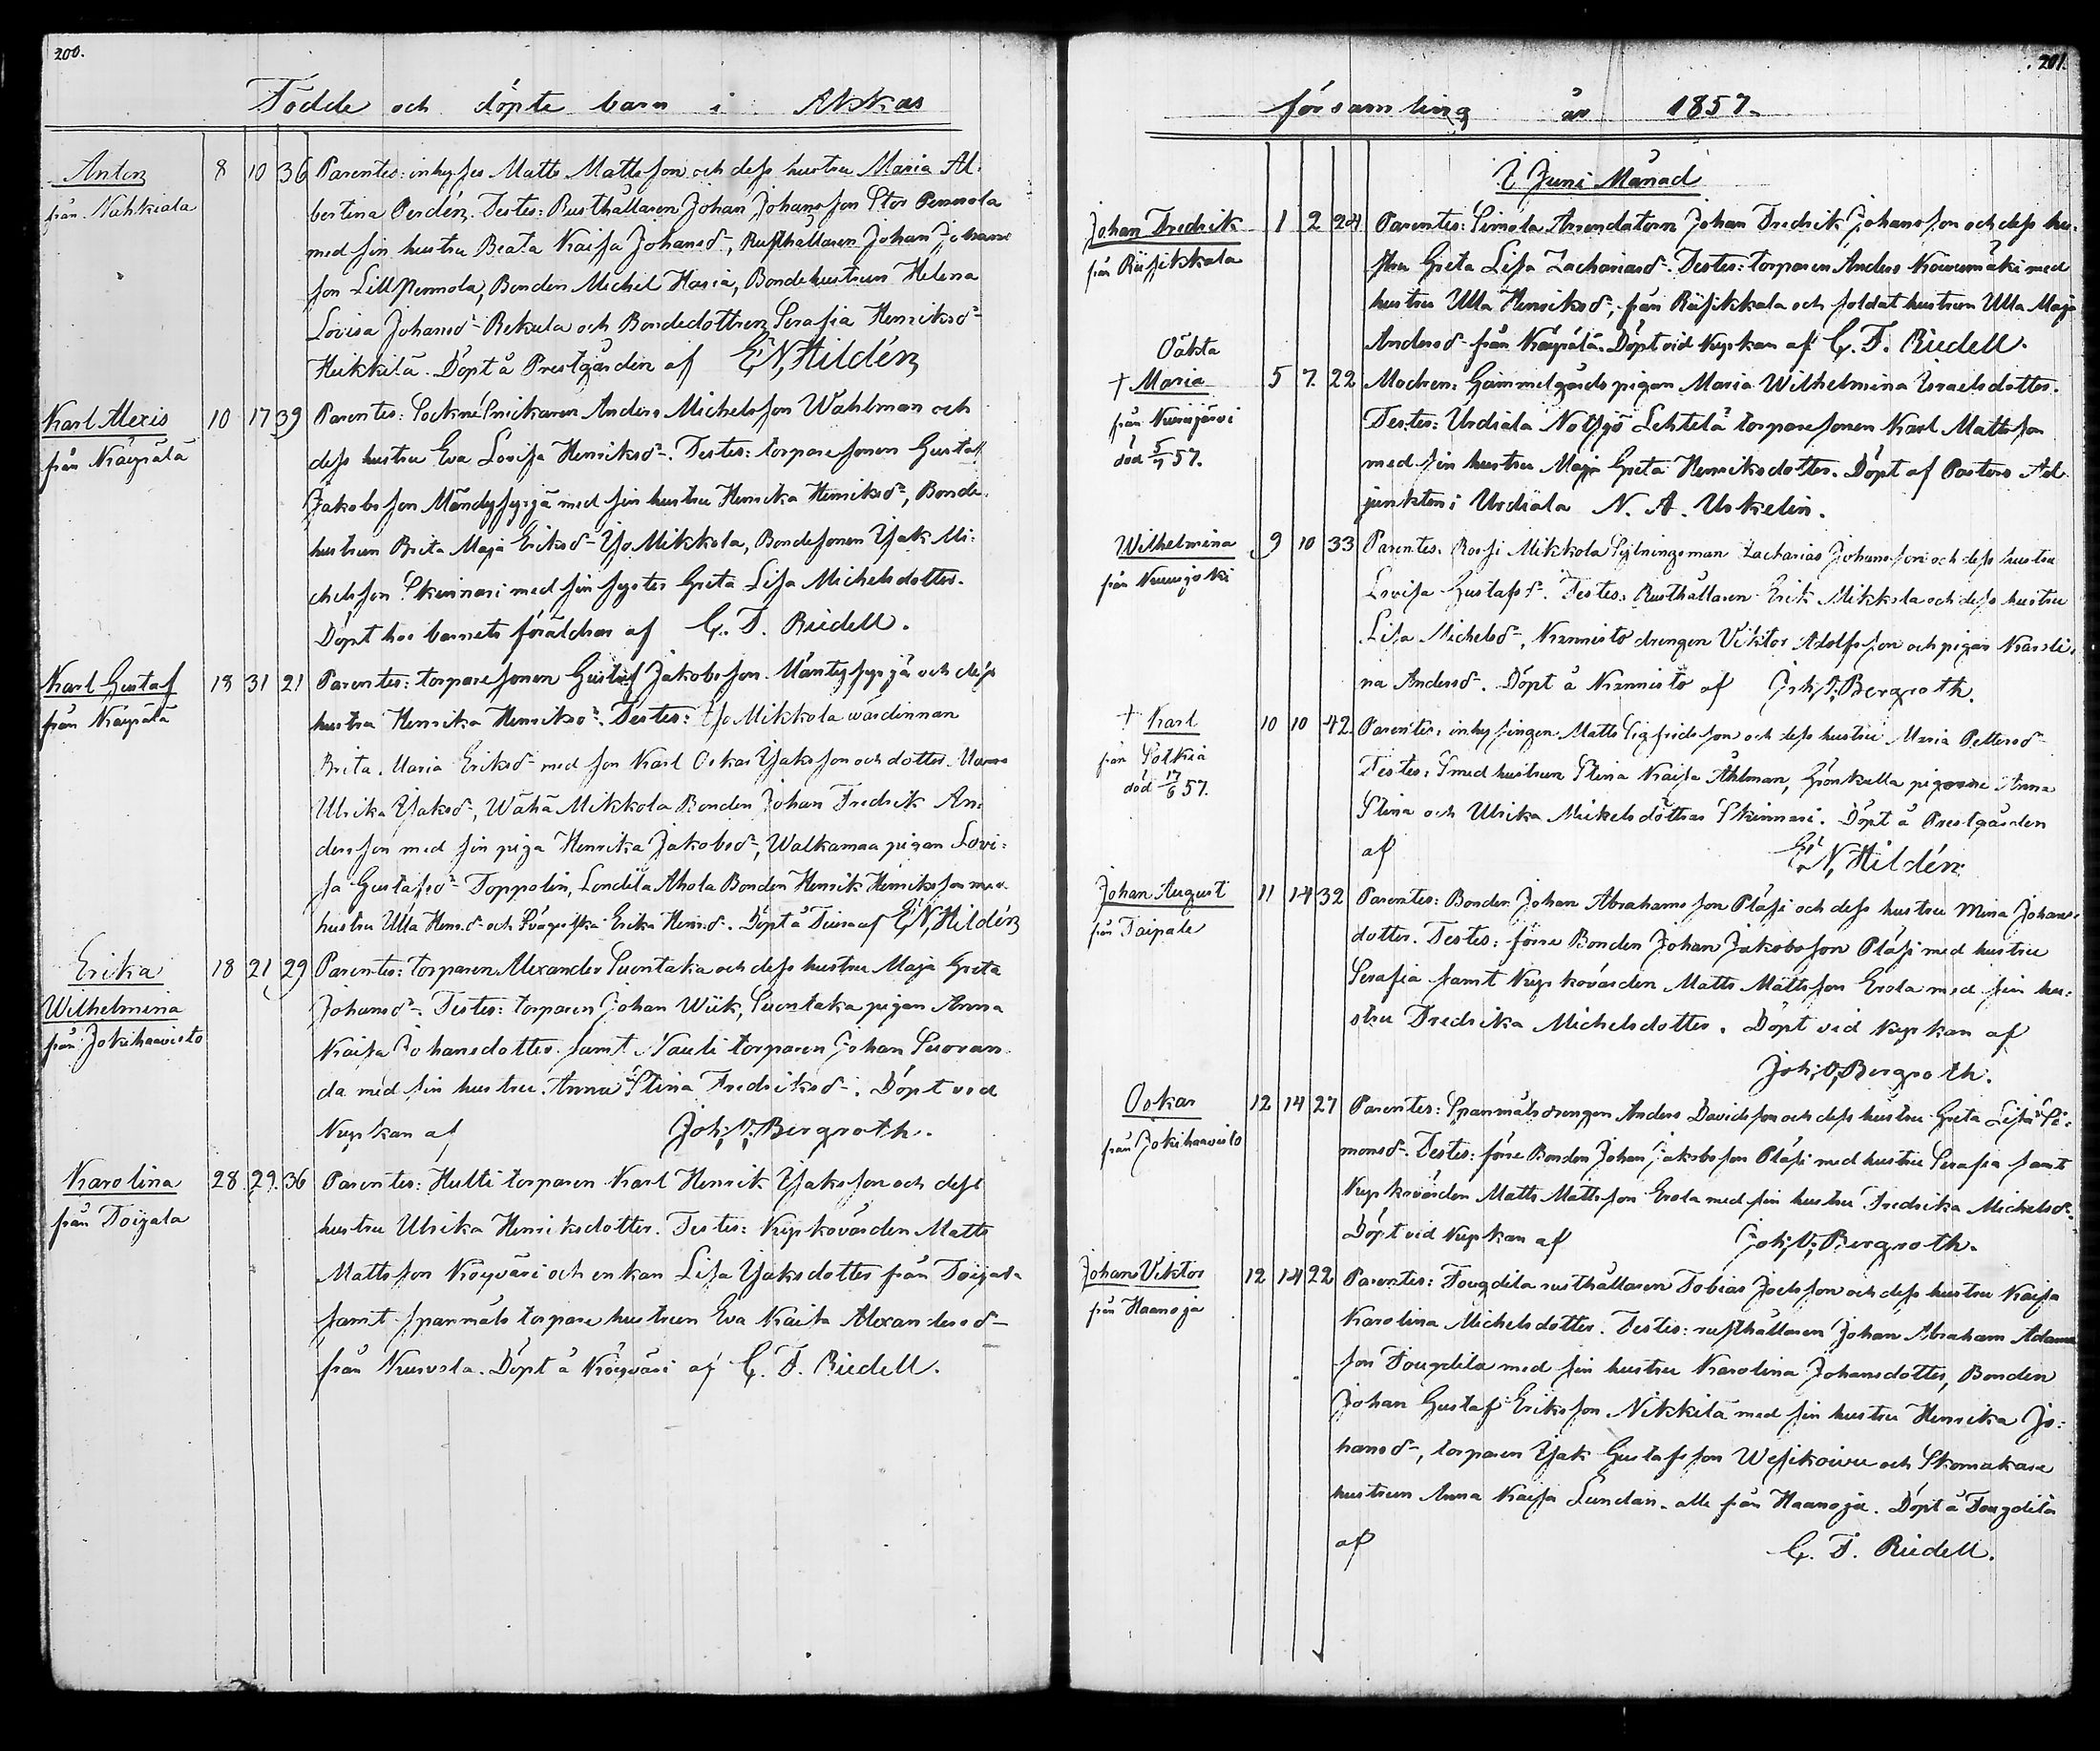 200.
Födde och döpte barn i Akkas
Anton
från Nahkiala
8 10 36 Parentes: inhyses Matts Mattsson och dess hustru Maria Al-
bertina Oerdén. Testes: Rusthållaren Johan Johansson Stor Pennola
med sin hustru Beata Kaisa Johansd-, Rusthållaren Johan Johans
son Lill Pennola, Bonden Michel Haria, Bondehustrun Helena
Lovisa Johansd- Rekula och Bondedottren Serafia Henriksd-
Heikkilä. Döpt å Prestgården af E. N. Hildén
Karl Alexis
från Kägrälä
10 17 39 Parentes: Sockne Snickaren Anders Michelsson Wahlman och
dess hustru Eva Lovisa Henriksd-. Testes: torparesonen Gustaf
Jakobsson Mändysyrjä med sin hustru Henrika Henriksd-, Bonde-
hustrun Brita Maja Eriksd- Yso Mikkola, Bondesonen Isak Mi-
chelsson Skinnari med sin syster Greta Lisa Michelsdotter.
Döpt hos barnets föräldrar af C. F. Riedell.
Karl Gustaf
från Kägrälä
18 31 21 Parentes: torparesonen Gustaf Jakobsson Mäntysyrjä och dess
hustru Henrika Henriksd-. Testes: Iso Mikkola wärdinnan
Brita Maria Eriksd- med son Karl Oskar Isaksson och dotter
Ulrika Isaksd-, Wähä Mikkola Bonden Johan Fredrik An-
dersson med sin piga Henrika Jakobsd-, Walkamaa pigan Lovi-
sa Gustafsd- Toppolin, Londila Ahola Bonden Henrik Henriksson med
hustru Ulla Henr.d- och Erika Henr.d-. Döpt å af E. N. Hildén
Erika
Wilhelmina
från Jokihaavisto
18 21 29 Parentes: torparen Alexander Suontaka och dess hustru Maja Greta
Johansd-. Testes: torparen Johan Wiik, Suontaka pigan Anna
Kaisa Johansdotter samt Nauli torparen Johan Suoran-
da med sin hustru Anna Stina Fredriksd-. Döpt vid
Kyrkan af Joh. V. Bergroth.
Karolina
från Toijala
28 29 36 Parentes: Hutti torparen Karl Henrik Isaksson och dess
hustru Ulrika Henriksdotter. Testes: Kyrkovärden Matts
Mattsson Köyväri och enkan Lisa Isaksdotter från Toijala
samt spanmåls torpare hustrun Eva Kaisa Alexandersd-
från Kurvola. Döpt å Köyväri af C. F. Riedell.
201.
församling år 1857.
I Juni Månad
Johan Fredrik
från Riisikkala
1 2 24 Parentes: Simola Arrendatorn Johan Fredrik Johansson och dess hu-
stru Greta Lisa Zachariasd-. Testes: torparen Anders med
hustru Ulla Henriksd-, från Riisikkala och soldat hustrun Ulla Maja
Andersd- från Kägrälä. Döpt vid Kyrkan af C. F. Riedell.
Oäkta
† Maria
från Kurisjärvi
död 5/7 57.
5 7 22 Modren: Gammelgårds pigan Maria Wilhelmina Israelsdotter.
Testes: Urdiala Notsjö Lehtelä torparesonen Karl Mattsson
med sin hustru Maja Greta Henriksdotter. Döpt af Pastors Ad-
junkten i Urdiala N. A. Urkelin.
Wilhelmina
från Kurisjoki
9 10 33 Parentes: Rossi Mikkola Sytningsman Zacharias Johansson och dess hustru
Lovisa Gustafsd-. Testes: Rusthållaren Erik Mikkola och dess hustru
Lisa Michelsd-, Krannisto drengen Viktor Adolfsson och pigan Karoli-
na Andersd-. Döpt å Krannisto af Joh. V. Bergroth.
† Karl
från Sotkia
död 17/6 57.
10 10 42 Parentes: inhysingen Matts Sigfridsson och dess hustru Maria Pettersd-
Testes: Smed hustrun Stina Kaisa Åhlman, Grönkulla pigorne Anna
Stina och Ulrika Mickelsdöttrar Skinnari. Döpt å Prestgården
af E. N. Hildén
Johan August
från Taipale
11 14 32 Parentes: Bonden Johan Abrahamsson Pläsi och dess hustru Mina Johans-
dotter. Testes: förre Bonden Johan Jakobsson Pläsi med hustru
Serafia samt Kyrkovärden Matts Mattsson Erola med sin hu-
stru Fredrika Michelsdotter. Döpt vid Kyrkan af
Joh. V. Bergroth.
Oskar
från Jokihaavisto
12 14 27 Parentes: Spanmåls drengen Anders Davidsson och dess hustru Greta Lisa Si-
monsd-. Testes: förre Bonden Johan Jakobsson Pläsi med hustru Serafia samt
Kyrkovärden Matts Mattsson Erola med sin hustru Fredrika Michelsd-.
Döpt vid Kyrkan af Joh. V. Bergroth.
Johan Viktor
från Haanoja
12 14 22 Parentes: Fougdila rusthållaren Tobias Joelsson och dess hustru Kaisa
Karolina Michelsdotter. Testes: rusthållaren Johan Abraham Adams
son Fougdila med sin hustru Karolina Johansdotter, Bonden
Johan Gustaf Eriksson Nikkilä med sin hustru Henrika Jo-
hansd-, torparen Isak Gustafsson Wesikoivu och Skomakare
hustrun Anna Kaisa Lundán, alle från Haanoja. Döpt å Fougdila
af C. F. Riedell.